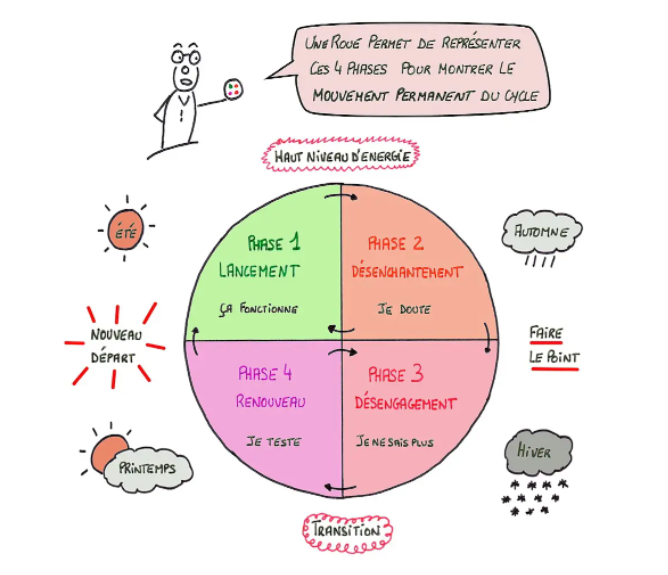 UNE ROUE PERMET DE REPRÉSENTER
CES 4 PHASES POUR MONTRER LE
MOUVEMENT PERMANENT DU CYCLE
HAUT NIVEAU D'ENERGIE
ÉTÉ
PHASE 1
LANCEMENT
ÇA FONCTIONNE
PHASE 2
DÉSENCHANTEMENT
JE DOUTE
AUTOMNE
NOUVEAU
DÉPART
FAIRE
LE POINT
PHASE 4
RENOUVEAU
JE TESTE
PHASE 3
DÉSENGAGEMENT
JE NE SAIS PLUS
PRINTEMPS
HIVER
TRANSITION